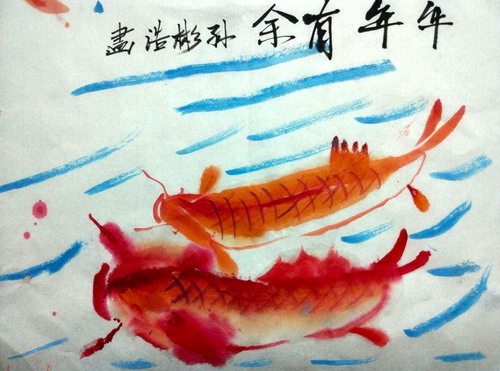 年年有余 孙彬浩畫